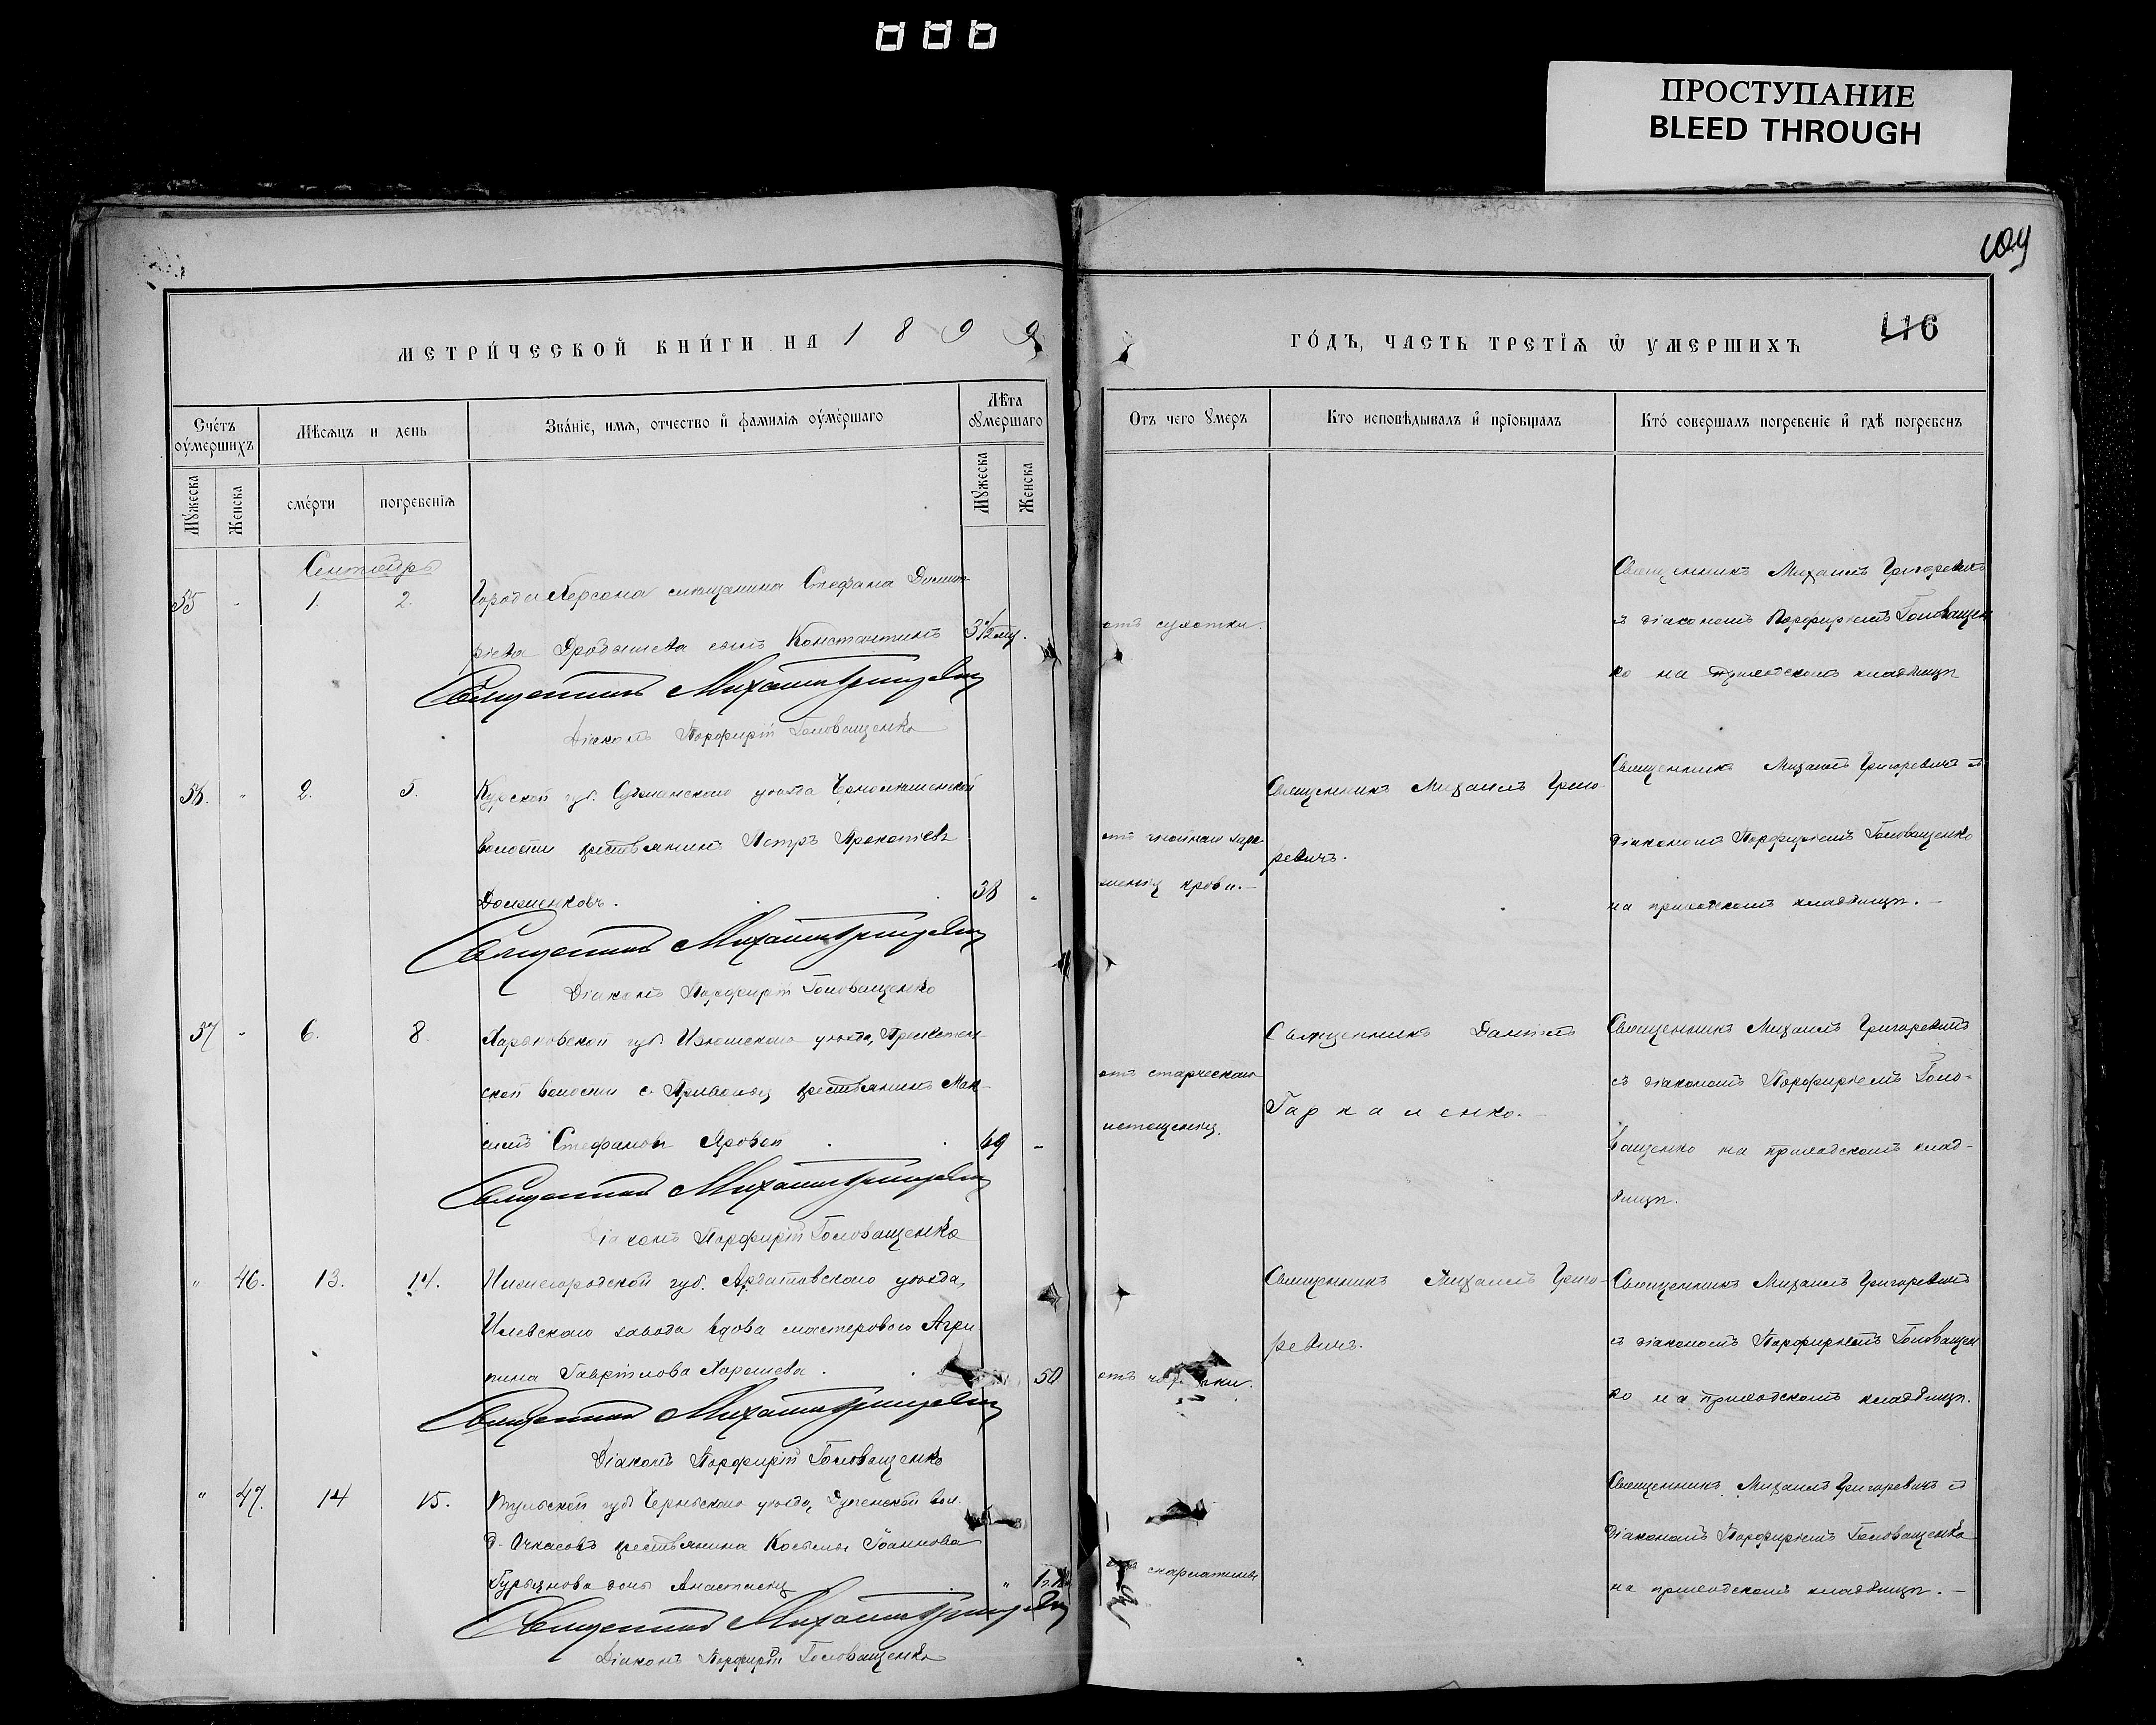 ПРОСТУПАНИЕ
BLEED THROUGH
109
116
МЕТРИ́ЧЕСКОЙ КНИ́ГИ НА 1899
ГО́ДЪ, ЧАСТЬ ТРЕТІѦ Ѿ УМЕРШИХЪ
Сче́тъ оу҆ме́ршихъ
Мѣсяцъ и день
Зва́ніе, имя, отчество и҆ фамилія оу҆ме́ршаго
Лѣта оумершаго
Мꙋжеска
Женска
сме́рти
погребенія
Мꙋжеска
Женска
Отъ чего ꙋмеръ
Кто исповѣдывалъ и҆ пріобщалъ
Кто́ совершалъ погребеніе и҆ гдѣ погребенъ
Сентябрь
55 „ 1. 2.
Города Херсона мѣщанина Стефана Димит
ріева Дробышева сынъ Константинъ 3½ мѣ.
Священникъ Михаилъ Григоревич
Діаконъ Порфирій Головащенко
отъ сухотки.
Священникъ Михаилъ Григоревичъ
съ діакономъ Порфиріемъ Головащен
ко на приходскомъ кладбищѣ
56. „ 2. 5.
Курской губ. Суджанскаго уѣзда
волости крестьянинъ Петръ Прокопіевъ
Долженковъ. 38 -
Священникъ Михаилъ Григоревич
Діаконъ Порфирій Головащенко
отъ гнойнаго зара
женія крови.—
Священникъ Михаилъ Григо-
ревичъ.
Священникъ Михаилъ Григоревичъ съ
діакономъ Порфиріемъ Головащенко
на приходскомъ кладбищѣ.—
57 „ 6. 8.
Харьковской губ. Изюмскаго уѣзда,
ской волости с. Приволья крестьянинъ Мак-
симъ Стефановъ Яровой 69 -
Священникъ Михаилъ Григоревич
Діаконъ Порфирій Головащенко
отъ старческаго
истощенія.
Священникъ Даніилъ
Гаркаленко.—
Священникъ Михаилъ Григоревичъ
съ діакономъ Порфиріемъ Голо-
ващенко на приходскомъ клад-
бищѣ.
„ 46. 13. 14.
Нижегородской губ. Ардатовскаго уѣзда,
Илевскаго завода вдова мастероваго Агри
пина Гавріилова Харошева. 50
Священникъ Михаилъ Григоревич
Діаконъ Порфирій Головащенко
отъ
Священникъ Михаилъ Григо-
ревичъ.
Священникъ Михаилъ Григоревичъ
съ діакономъ Порфиріемъ Головащен
ко на приходскомъ кладбищѣ.
„ 47. 14 15.
Тульской губ. Чернскаго уѣзда, вол.
д. Очкасовъ крестьянина Косьмы Іоаннова
Гурьянова дочь Анастасія „
Священникъ Михаилъ Григоревич
Діаконъ Порфирій Головащенко
скарлатины
Священникъ Михаилъ Григоревичъ съ
діакономъ Порфиріемъ Головащенко
на приходскомъ кладбищѣ.—